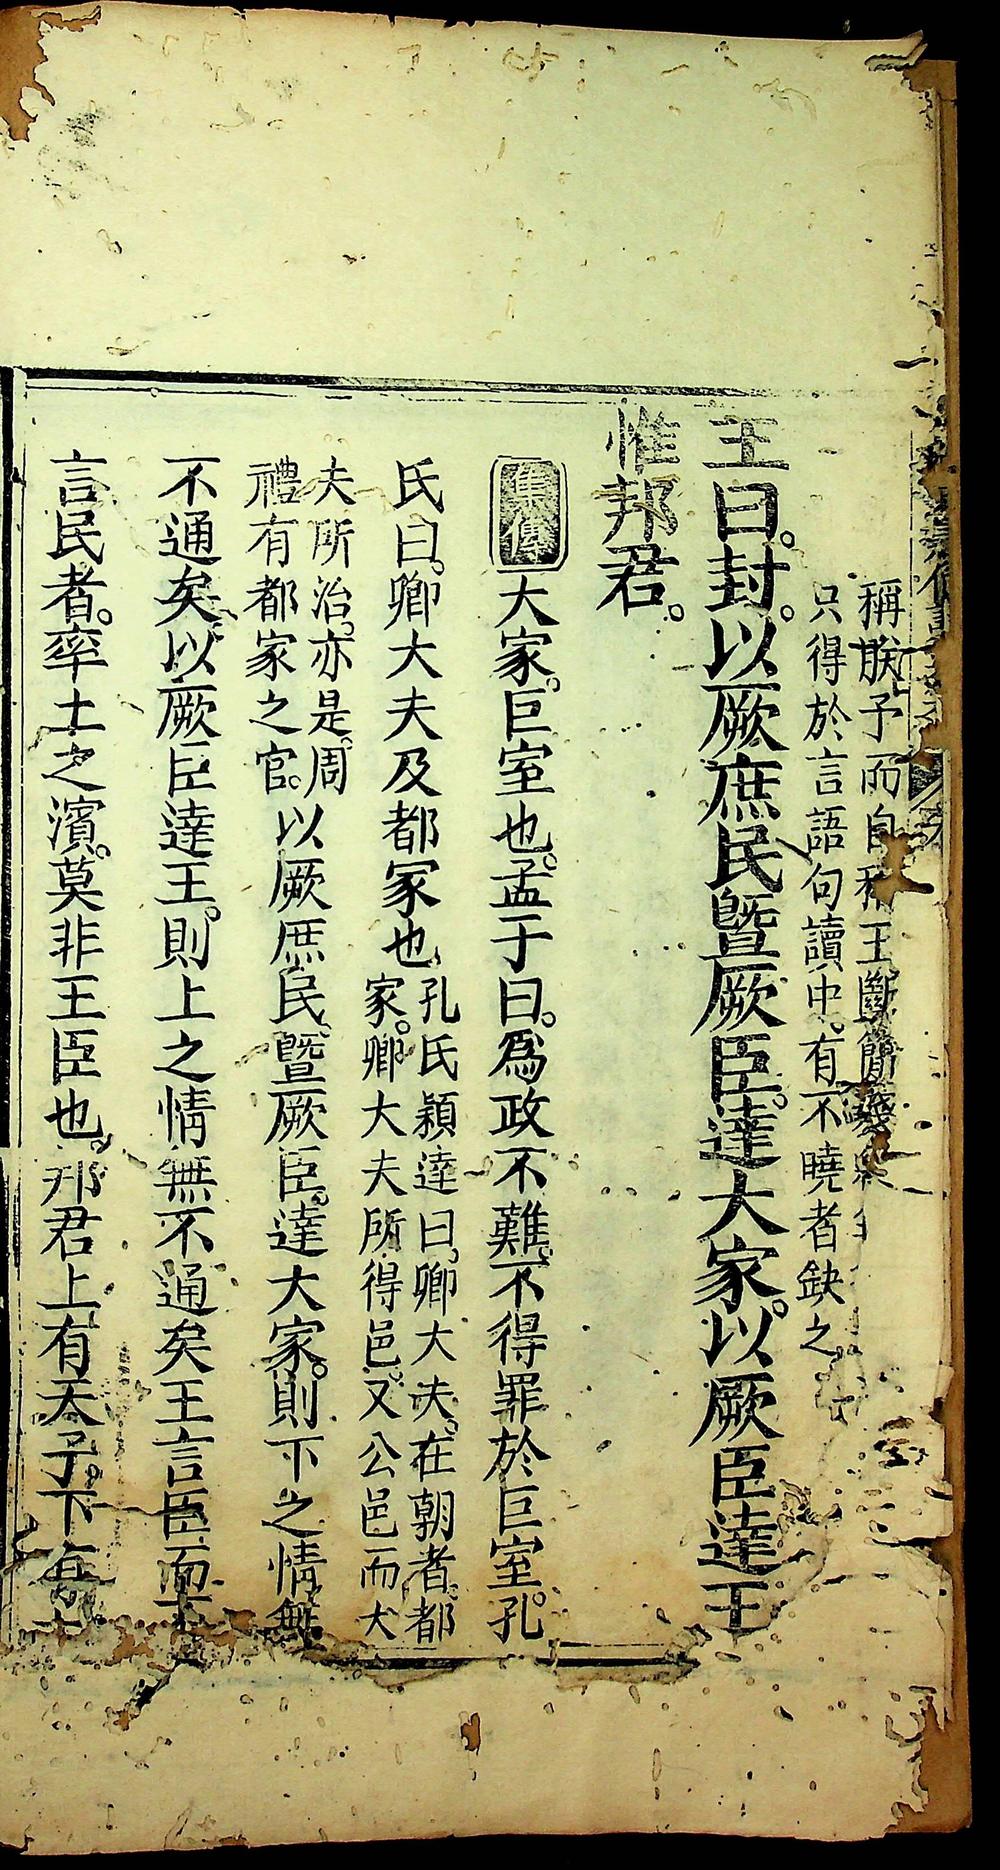 稱朕予而自稱王斷簡殘
只得於言語句讀中。有不曉者缺之
王曰。封。以厥庶民暨厥臣。達大家。以厥臣達王
惟邦君。
集傳 大家。巨室也。孟子曰。爲政不難。不得罪於巨室。孔
氏曰。卿大夫及都家也
孔氏穎達曰。卿大夫。在朝者。都
家。卿大夫所得邑。又公邑而大
夫所治。亦是。周
禮有都家之官。
以厥庶民。暨厥臣。達大家。則下之情無
不通矣。以厥臣達王。則上之情無不通矣。王言臣而不
言民者。率土之濱。莫非王臣也。邦君上有天子。下有大